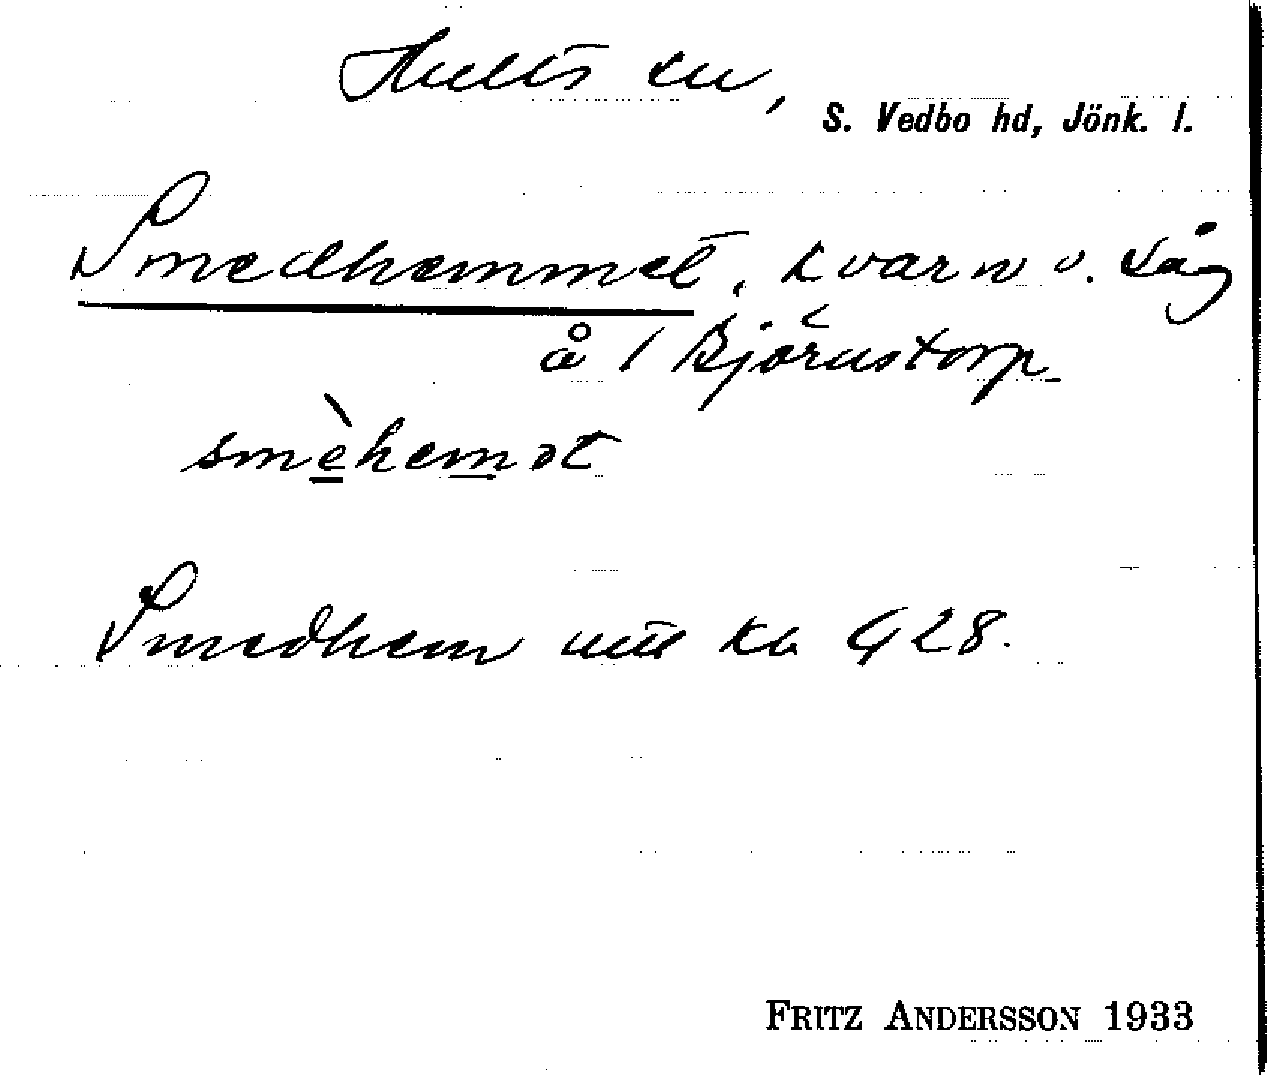 Hults sn,
S. Vedbo hd, Jönk. l.
Smedhemmet, kvarn o. såg
å 1 Björnstorp
smèhemət
Smedhem utt kb 928.
FRITZ ANDERSSON 1933